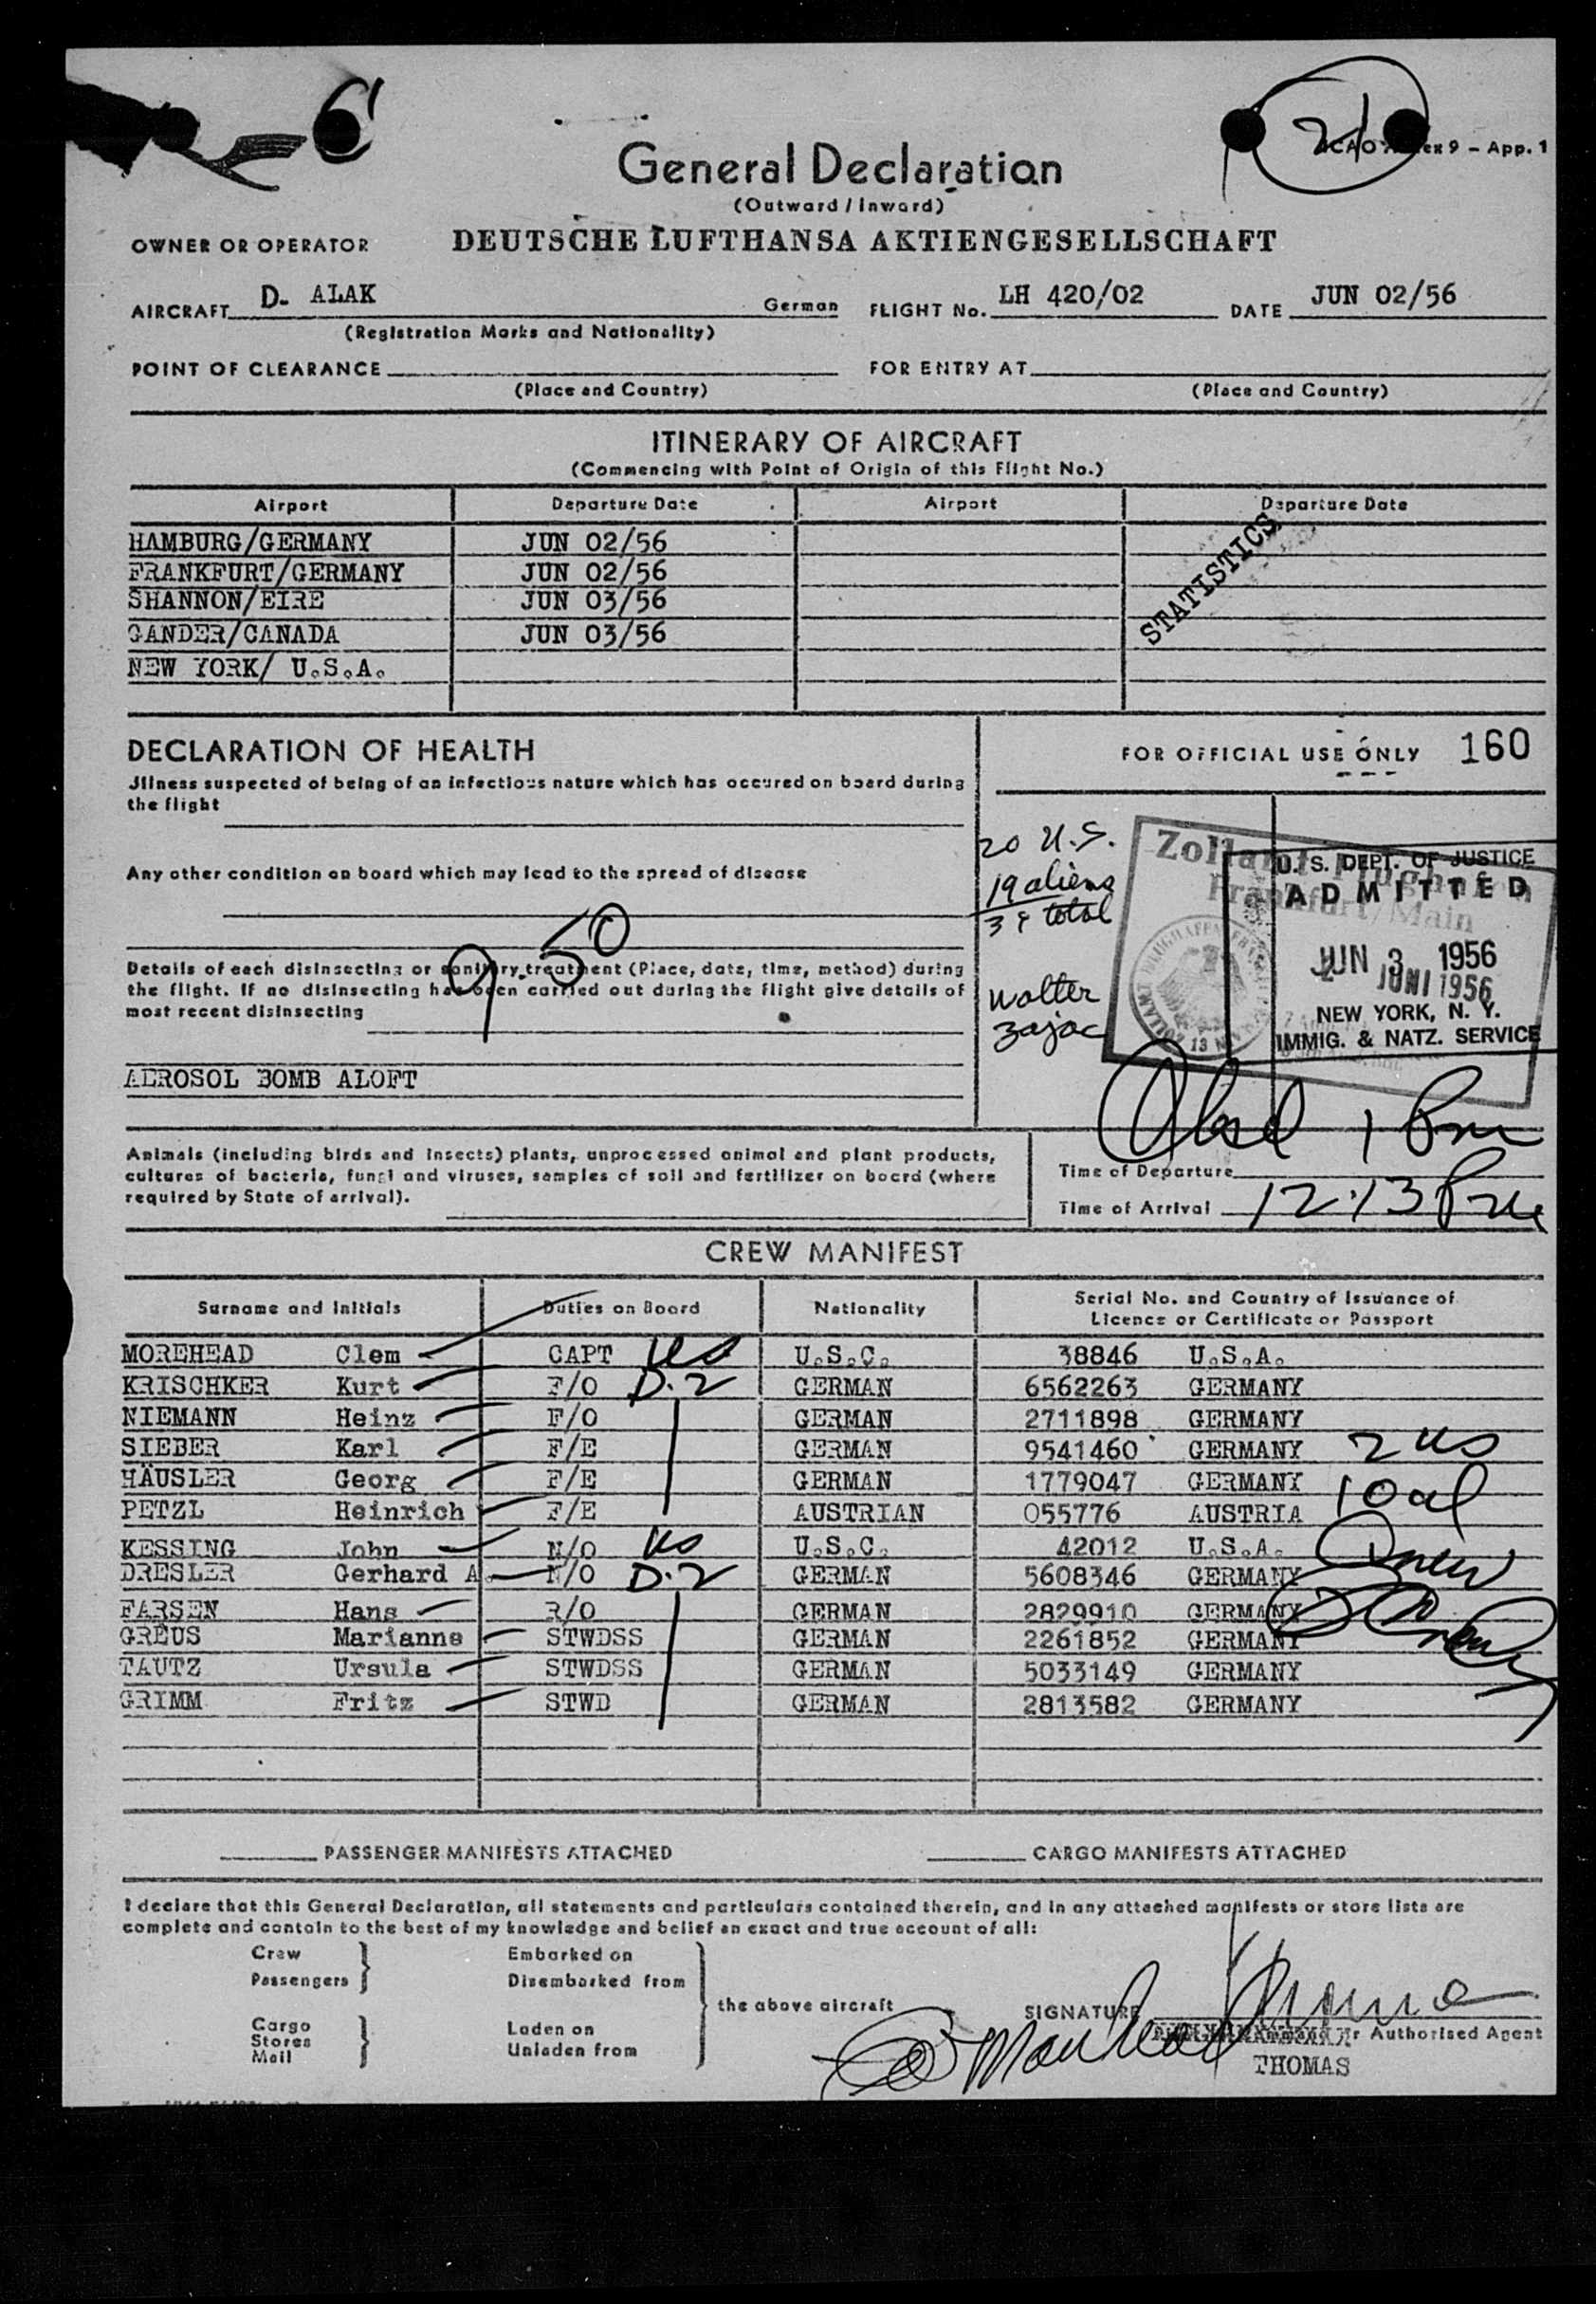 6
21
ICAO Annex 9 – App. 1
General Declaration
(Outward / Inward)
OWNER OR OPERATOR DEUTSCHE LUFTHANSA AKTIENGESELLSCHAFT
AIRCRAFT D- ALAK German FLIGHT No. LH 420/02 DATE JUN 02/56
(Registration Marks and Nationality)
POINT OF CLEARANCE FOR ENTRY AT
(Place and Country) (Place and Country)
ITINERARY OF AIRCRAFT
(Commencing with Point of Origin of this Flight No.)
Airport Departure Date Airport Departure Date
HAMBURG/GERMANY JUN 02/56
FRANKFURT/GERMANY JUN 02/56
SHANNON/EIRE JUN 03/56
GANDER/CANADA JUN 03/56
NEW YORK/ U.S.A.
STATISTICS
DECLARATION OF HEALTH
Jllness suspected of being of an infectious nature which has occured on board during
the flight
Any other condition on board which may lead to the spread of disease
9.50
Details of each disinsecting or sanitary treatment (Place, date, time, method) during
the flight. If no disinsecting has been carried out during the flight give details of
most recent disinsecting
AEROSOL BOMB ALOFT
FOR OFFICIAL USE ONLY 160
20 U.S.
19 aliens
39 total
Walter
Zajac
Zollamt Flughafen
Frankfurt/Main
JUNI 1956
U.S. DEPT. OF JUSTICE
ADMITTED
JUN 3 1956
NEW YORK, N. Y.
IMMIG. & NATZ. SERVICE
Animals (including birds and insects) plants, unprocessed animal and plant products,
cultures of bacteria, fungi and viruses, samples of soil and fertilizer on board (where
required by State of arrival).
1 Pm
Time of Departure
Time of Arrival 12:13 Pm
CREW MANIFEST
Surname and Initials Duties on Board Nationality Serial No. and Country of Issuance of
Licence or Certificate or Passport
MOREHEAD Clem CAPT US U.S.C. 38846 U.S.A.
KRISCHKER Kurt F/O D.2 GERMAN 6562263 GERMANY
NIEMANN Heinz F/O GERMAN 2711898 GERMANY
SIEBER Karl F/E GERMAN 9541460 GERMANY 2 US
HÄUSLER Georg F/E GERMAN 1779047 GERMANY 10 al
PETZL Heinrich F/E AUSTRIAN 055776 AUSTRIA
KESSING John N/O US U.S.C. 42012 U.S.A.
DRESLER Gerhard A. N/O D.2 GERMAN 5608346 GERMANY
FARSEN Hans R/O GERMAN 2829910 GERMANY
GREUS Marianne STWDSS GERMAN 2261852 GERMANY
TAUTZ Ursula STWDSS GERMAN 5033149 GERMANY
GRIMM Fritz STWD GERMAN 2813582 GERMANY
PASSENGER MANIFESTS ATTACHED CARGO MANIFESTS ATTACHED
I declare that this General Declaration, all statements and particulars contained therein, and in any attached manifests or store lists are
complete and contain to the best of my knowledge and belief an exact and true account of all:
Crew Embarked on
Passengers Disembarked from
the above aircraft
Cargo Laden on
Stores
Mail Unladen from
SIGNATURE
Authorised Agent
THOMAS